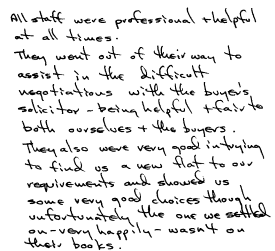 All staff were professional + helpful
at all times.
They went out of their way to
assist in the difficult
negotiations with the buyer's
solicitor - being helpful + fair to
both ourselves + the buyers.
They also were very good in trying
to find us a new flat to our
requirements and showed us
some very good choices though
unfortunately the one we settled
on - very happily - wasn't on
their books.